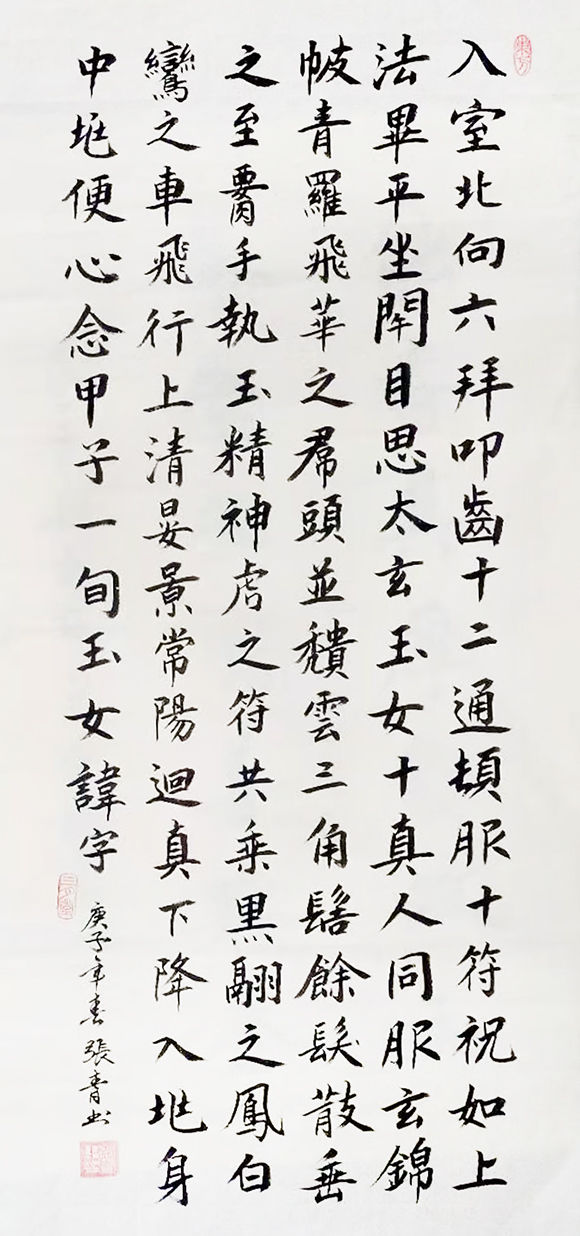 入室北向六拜叩齒十二通頓服十符祝如上
法畢平坐閉目思太玄玉女十真人同服玄錦
帔青羅飛華之帬頭並穨雲三角髻餘髮散垂
之至𦝫手執玉精神虎之符共乘黑翮之鳳白
鸞之車飛行上清晏景常陽迴真下降入𡉏身
中𡉏便心念甲子一旬玉女諱字
庚子年春張青書